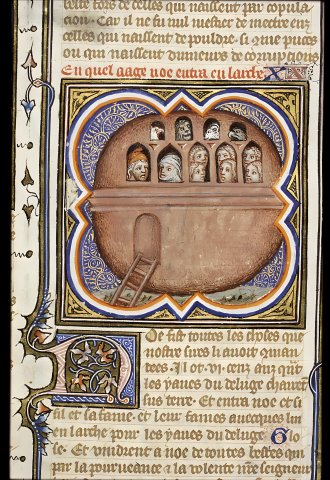 toute fors de celles qui naissent par copula
cion. Car il ne fu nul mestier de mectre en
celles qui naissent de pouldre. si que puces
ou qui naissent dumeurs de corrupcions
En quel aage noe entra en larche X
Noe fist toutes les choses que
nostre sires li avoit quian
tees. Il ot .vi. cenz anz que
les yaues du deluge chaut
sus terre. Et entra noe et si
fil et sa fame. et leur fames avecques lui
en larche pour les yaues du deluge Glo
se. Et vindrent a noe de toutes bestes
par la pourveance et a la volente nostre seigneur